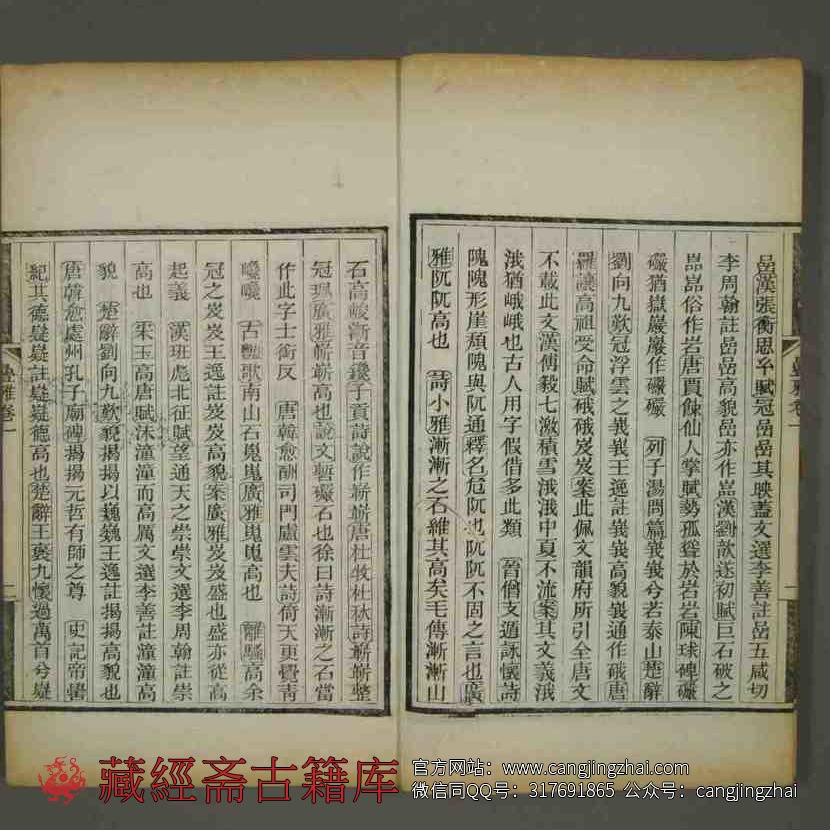 喦漢張衡思玄賦冠喦喦其映蓋文選李善註喦五咸切
李周翰註喦喦高貌喦亦作嵓漢劉歆遂初賦巨石破之
嵓嵓俗作岩唐賈餗仙人掌賦勢孤聳於岩岩陳球碑礹
礹猶嶽巖巖作礹礹 列子湯問篇峩峩兮若泰山楚辭
劉向九歎冠浮雲之峩峩王逸註峩峩高貌峩通作硪唐
羅讓高祖受命賦硪硪岌岌案此佩文韻府所引全唐文
不載此文漢傅毅七激積雪涐涐中夏不流案其文義涐
涐猶峨峨也古人用字假借多此類 晉僧支遁詠懷詩
隗隗形崖頹隗與阢通釋名危阢也阢阢不固之言也廣
雅阢阢高也 詩小雅漸漸之石維其高矣毛傳漸漸山
石高峻漸音鑱子貢詩說作嶄嶄唐杜牧杜秋詩嶄嶄整
冠珮廣雅嶄嶄高也說文暫礹石也徐曰詩漸漸之石當
作此字士銜反 唐韓愈酬司門盧雲夫詩倚天更覺青
巉巉 古豔歌南山石嵬嵬廣雅嵬嵬高也 離騷高余
冠之岌岌王逸註岌岌高貌案廣雅岌岌盛也盛亦從高
起義 漢班彪北征賦望通天之崇崇文選李周翰註崇
高也 宋玉高唐賦沫潼潼而高厲文選李善註潼潼高
貌 楚辭劉向九歎貌揭揭以巍巍王逸註揭揭高貌也
唐韓愈處州孔子廟碑揭揭元哲有師之尊 史記帝嚳
紀其德嶷嶷註嶷嶷德高也楚辭王褒九懷過萬首兮嶷
疊雅卷一
疊雅卷一
藏經斋古籍库
官方网站: www.cangjingzhai.com
微信同QQ号: 317691865 公众号: cangjingzhai